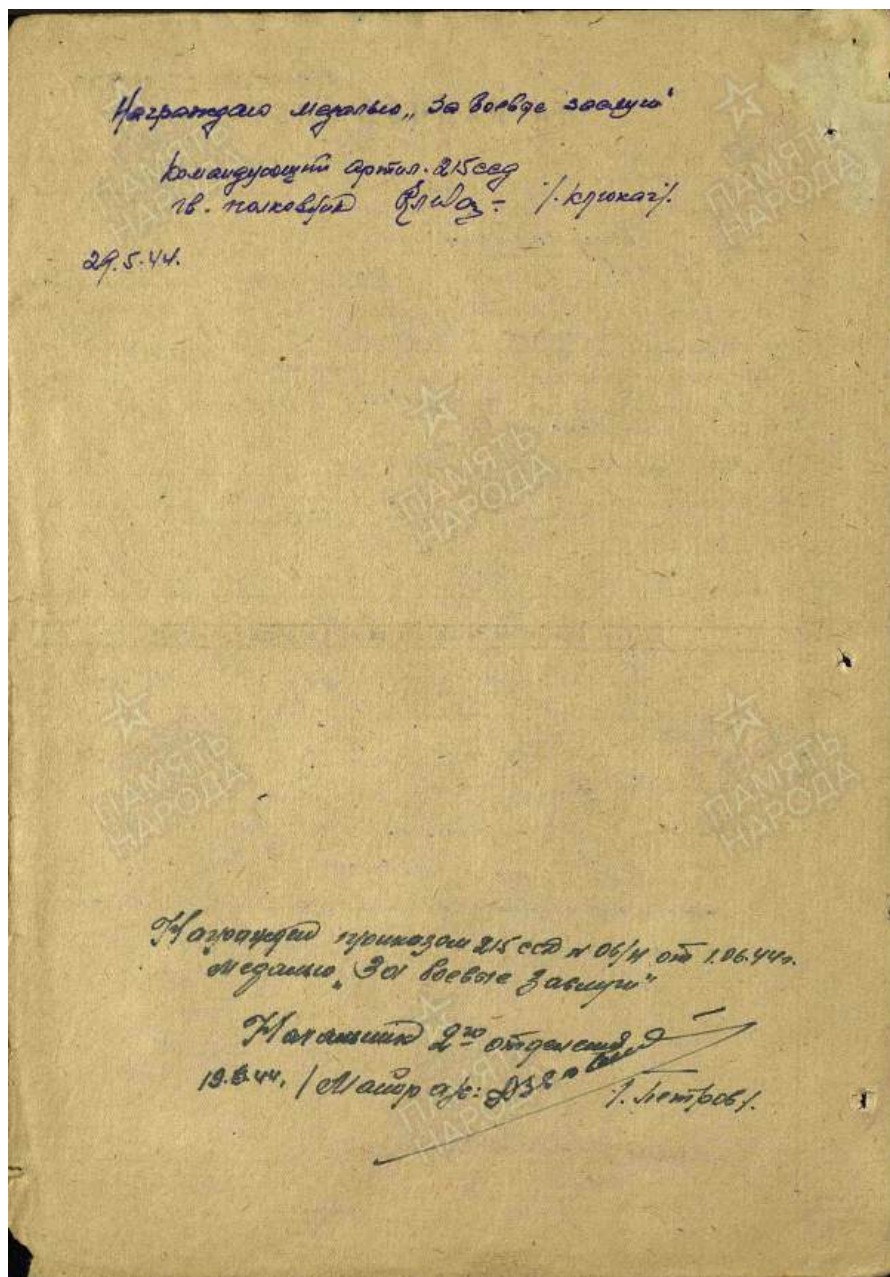 Награждаю медалью „За боевые заслуги"
Командующий артил. 215 ссд
гв. полковник /. Клюкач /.
29.5.44.
ПАМЯТЬ
НАРОДА
Награжден приказом 215 ссд № 06/н от 1.06.44г.
Медалью „За боевые Заслуги"
Начальник 2го отделения
19.6.44. / Майор а/с: /. Петров /.